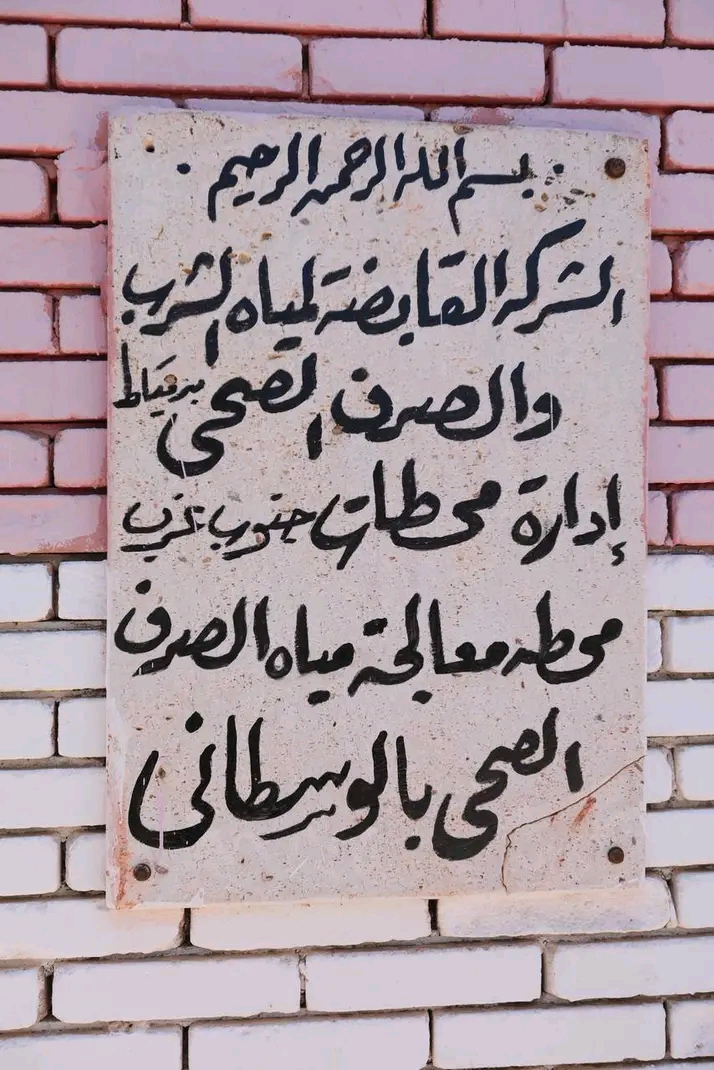 بسم الله الرحمن الرحيم
الشركه القابضة لمياه الشرب
والصرف الصحى بدمياط
إدارة محطات جنوب غرب
محطه معالجة مياه الصرف
الصحى بالوسطانى